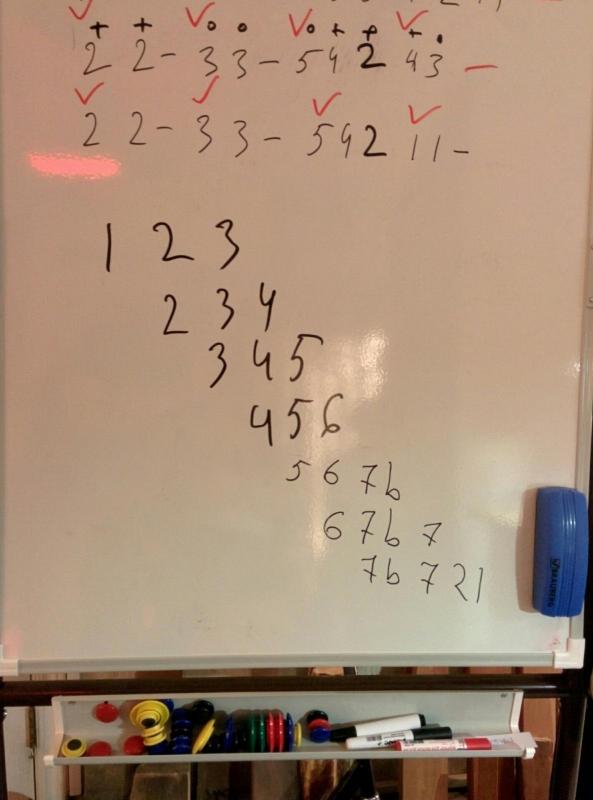 2 2 - 3 3 - 5 4 2 4 3 -
2 2 - 3 3 - 5 4 2 1 1 -
1 2 3
2 3 4
3 4 5
4 5 6
5 6 7b
6 7b 7
7b 7 21
BRAUBERG